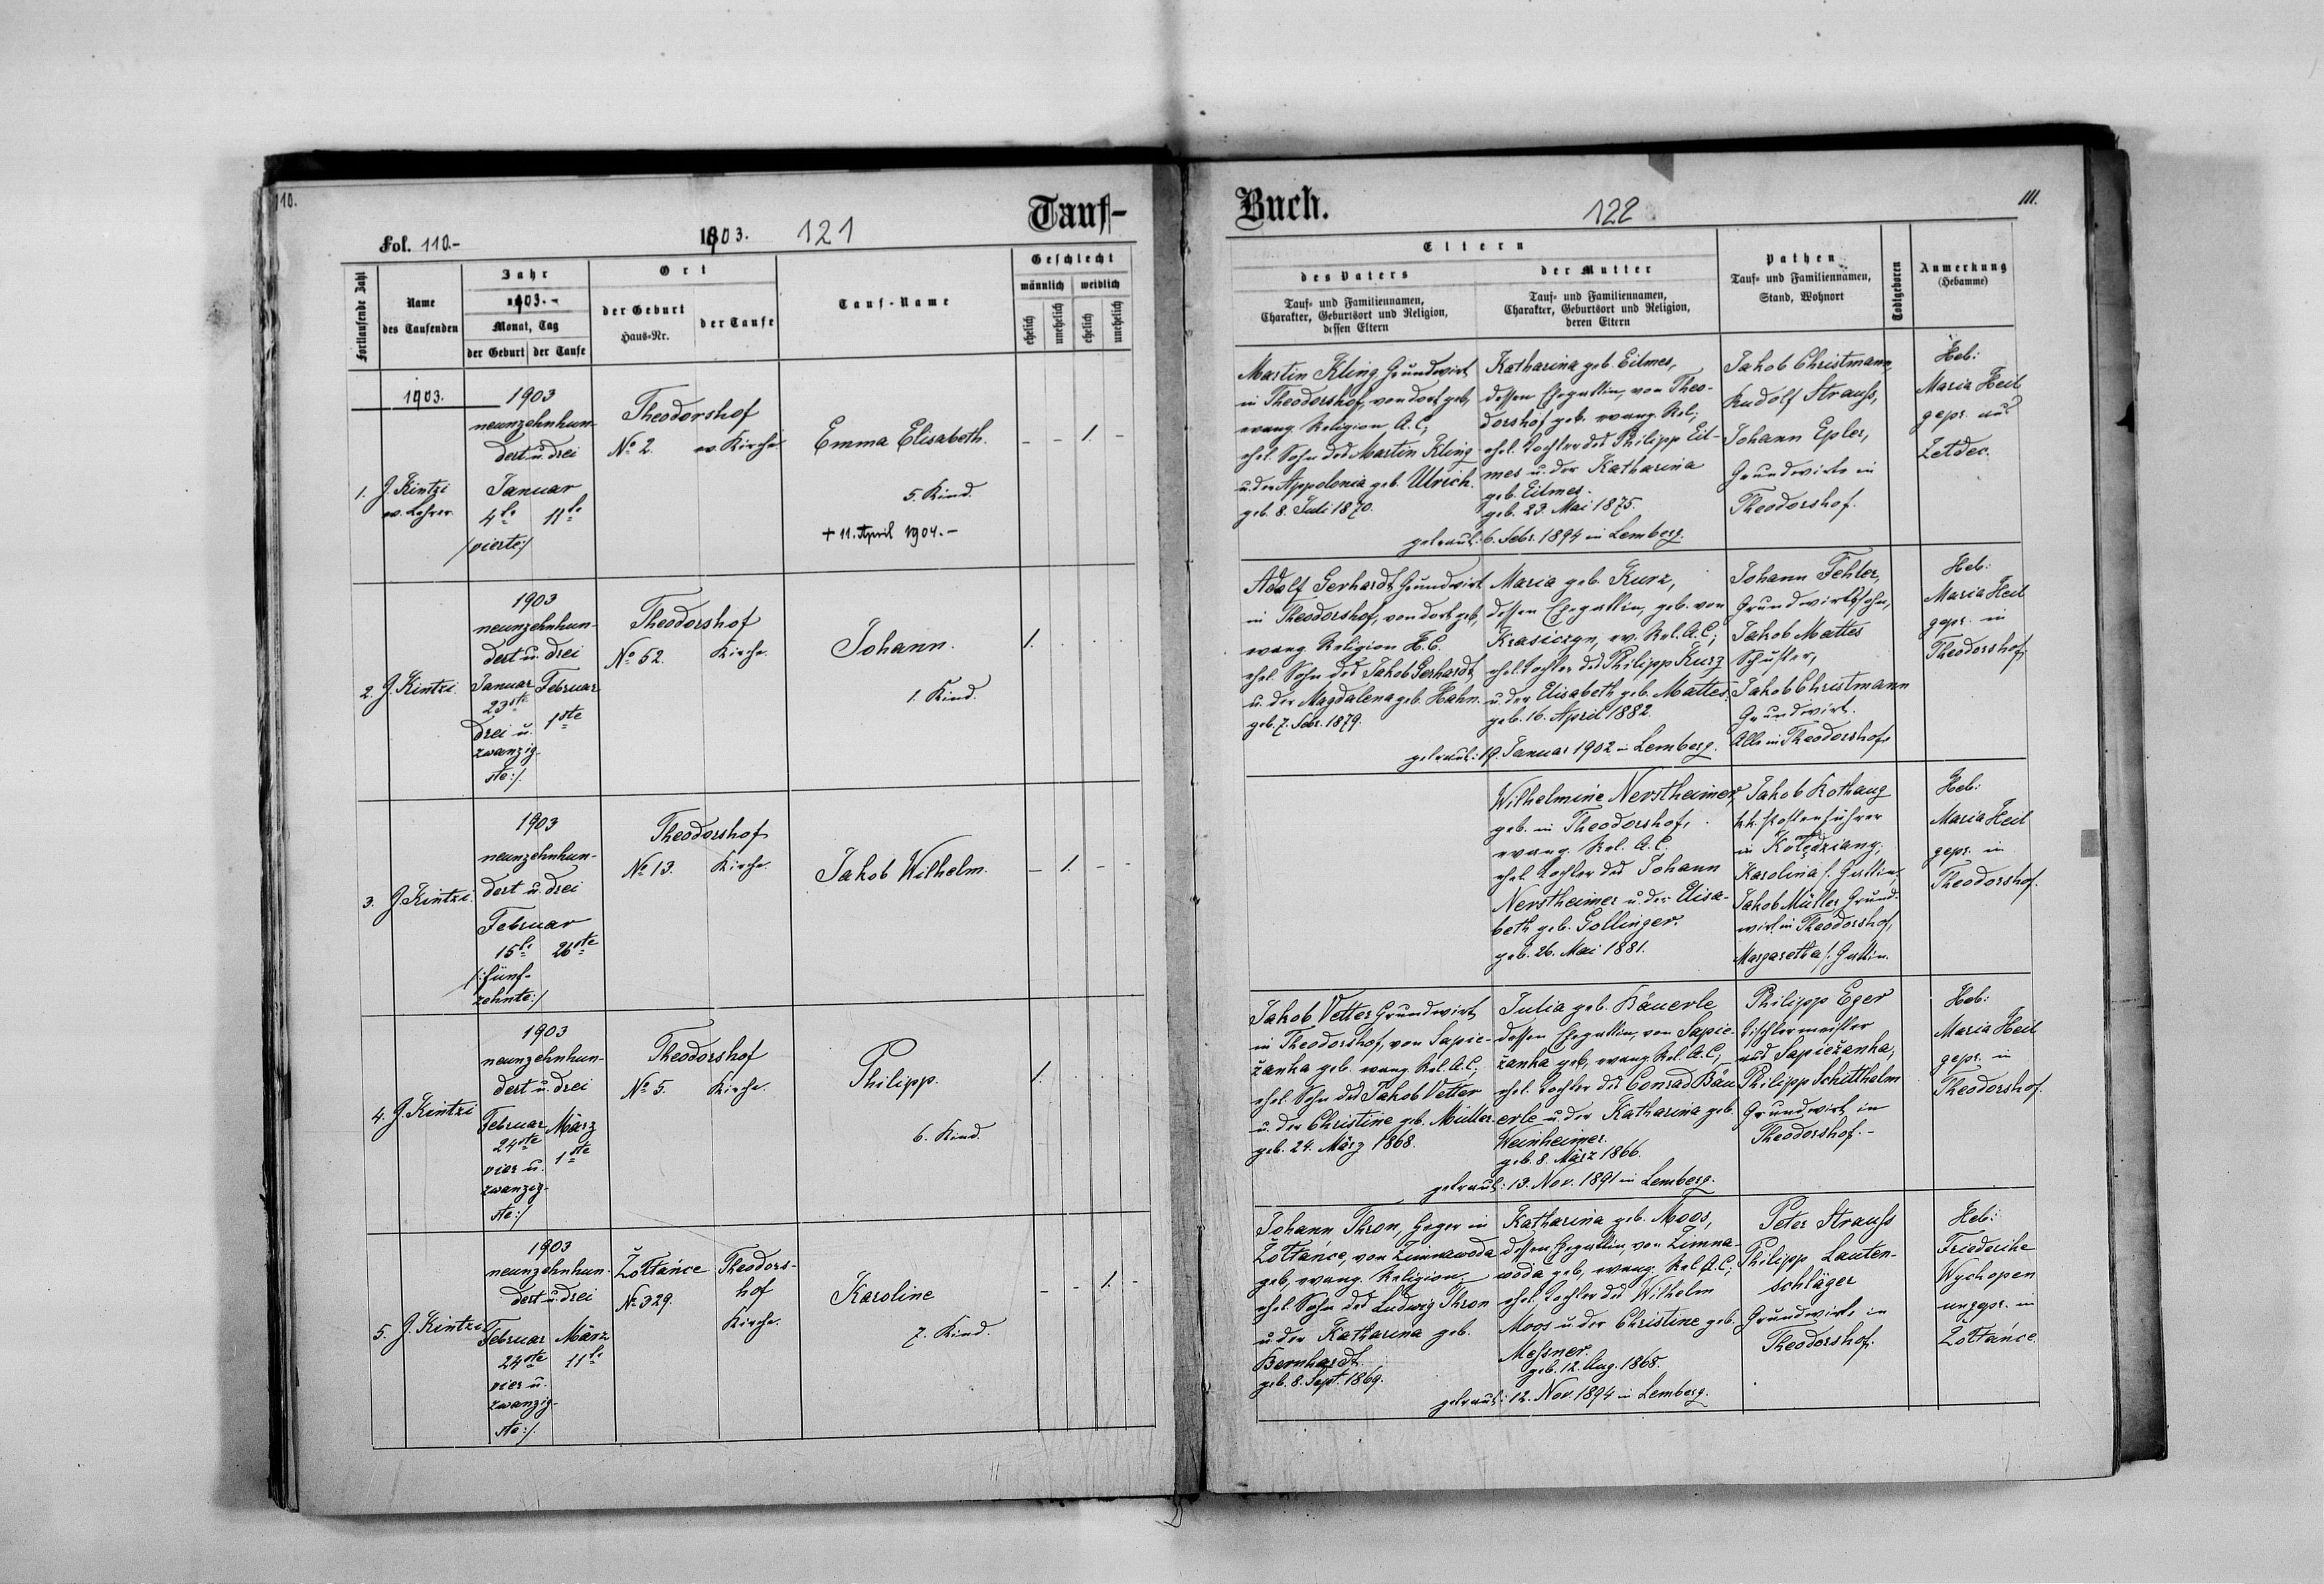 110.
Fol. 110.-
1903.
121
Tauf-
Fortlaufende Zahl
Name
des Taufenden
Jahr
1903.-
Monat, Tag
der Geburt
der Taufe
Ort
der Geburt
Haus-Nr.
der Taufe
Tauf-Name
Geschlecht
männlich
weiblich
ehelich
unehelich
ehelich
unehelich
1903.
1.
J. Kintzi
ev. Lehrer
1903
neunzehnhun-
dert u. drei
Januar
4te 11te
/vierte:/
Theodorshof
No 2. ev. Kirche
Emma Elisabeth.
5. Kind.
+ 11. April 1904.-
- - 1. -
2.
J. Kintzi.
1903
neunzehnhun-
dert u. drei
Januar Februar
23ste
drei u. 1ste
zwanzig-
ste:/
Theodorshof
No 52. Kirche.
Johann.
1. Kind.
1. . . .
3.
J Kintzi.
1903
neunzehnhun-
dert u. drei
Februar
15te 26ste
/:fünf-
zehnte:/
Theodorshof
No 13. Kirche.
Jakob Wilhelm.
- 1. - -
4.
J. Kintzi
1903
neunzehnhun-
dert u. drei
Februar März
24ste
vier u. 1ste
zwanzig-
ste:/
Theodorshof
No 5. Kirche.
Philipp.
6. Kind.
1. . . .
5.
J. Kintzi
1903
neunzehnhun-
dert u. drei
Februar März
24ste 11te
vier u.
zwanzig-
ste:/
Żółtańce Theodors-
No 329. hof
Kirche.
Karoline
7. Kind.
- - 1. -
Buch.
122
111.
Eltern
des Vaters
Tauf- und Familiennamen,
Charakter, Geburtsort und Religion,
dessen Eltern
der Mutter
Tauf- und Familiennamen,
Charakter, Geburtsort und Religion,
deren Eltern
Pathen
Tauf- und Familiennamen,
Stand, Wohnort
Todtgeboren
Anmerkung
(Hebamme)
Martin Kling Grundwirt
in Theodorshof, von dort geb,
evang. Religion A.C,
ehel. Sohn des Martin Kling
u. der Appolonia geb. Ulrich.
geb. 8. Juli 1870.
Katharina geb. Eilmes,
dessen Ehegattin, von Theo-
dorshof geb. evang. Rel;
ehel. Tochter des Philipp Eil-
mes u. der Katharina
geb. Eilmes.
geb. 23. Mai 1875.
getraut: 6. Febr. 1894 in Lemberg.
Jakob Christmann,
Rudolf Strauß,
Johann Epler,
Grundwirte in
Theodorshof.
Heb:
Maria Heil
gepr. aus
Zetdec.
Adolf Gerhardt, Grundwirt
in Theodorshof, von dort geb,
evang. Religion H.C.
ehel. Sohn des Jakob Gerhardt,
u. der Magdalena geb. Hahn.
geb. 7. Febr. 1879.
Maria geb. Kurz,
dessen Ehegattin, geb. von
Krasiczyn, ev. Rel. A.C;
ehel. Tochter des Philipp Kurz
u. der Elisabeth geb. Mattes.
geb. 16. April 1882.
getraut: 19. Januar 1902 in Lemberg.
Johann Fehler,
Grundwirtssohn,
Jakob Mattes
Schuster,
Jakob Christmann
Grundwirt.
Alle in Theodorshof.
Heb:
Maria Heil
gepr. in
Theodorshof,
Wilhelmine Nerstheimer,
geb. in Theodorshof,
evang. Rel. A.C.
ehel. Tochter des Johann
Nerstheimer u. der Elisa-
beth geb. Gollinger.
geb. 26. Mai 1881.
Jakob Kothaug
k.k. Postenführer
in Kolędziany;
Karolina s. Gattin,
Jakob Müller Grund-
wirt in Theodorshof,
Margaretha s. Gattin.
Heb:
Maria Heil
gepr. in
Theodorshof.
Jakob Vetter Grundwirt
in Theodorshof, von Sapie-
żanka geb. evang. Rel. A.C;
ehel. Sohn des Jakob Vetter
u. der Christine geb. Müller.
geb. 24. März 1868.
Julia geb. Bäuerle
dessen Ehegattin, von Sapie-
żanka geb, evang. Rel. A.C;
ehel. Tochter des Conrad Bäu
erle u. der Katharina geb.
Weinheimer.
geb. 8. März 1866.
getraut: 13. Nov. 1891 in Lemberg.
Philipp Eger
Tischlermeister
aus Sapieżanka,
Philipp Schitthelm
Grundwirt in
Theodorshof.-
Heb:
Maria Heil
gepr. in
Theodorshof.
Johann Thron, Heger in
Żółtańce, von Zimnawoda
geb, evang. Religion;
ehel. Sohn des Ludwig Thron
u. der Katharina geb.
Bernhardt.
geb. 8. Sept. 1869.
Katharina geb. Moos,
dessen Ehegattin, von Zimna-
woda geb, evang. Rel A.C;
ehel. Tochter des Wilhelm
Moos u. der Christine geb.
Meßner.
geb. 12. Aug. 1868.
getraut: 12. Nov. 1894 in Lemberg.
Peter Strauß
Philipp Lauten-
schläger
Grundwirte in
Theodorshof.
Heb:
Friederike
Wychopen
ungepr. in
Żółtańce.